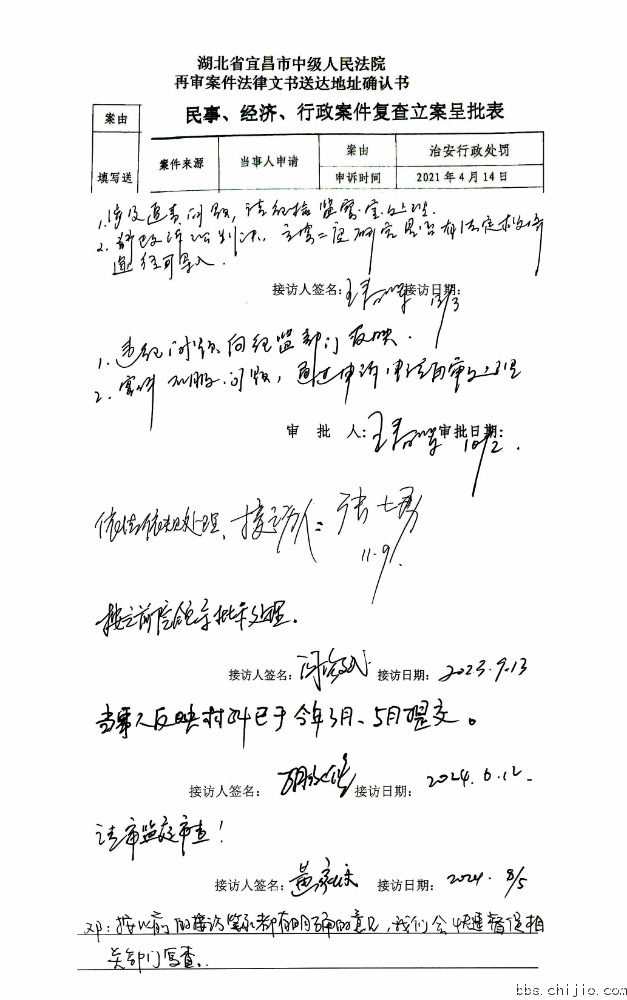 湖北省宜昌市中级人民法院
再审案件法律文书送达地址确认书
案由
民事、经济、行政案件复查立案呈批表
填写送
案件来源
当事人申请
案由
治安行政处罚
申诉时间
2021年4月14日
1.涉及追责问题,请纪检监察室处理.
2. 判决,立案二庭研究是否有法定救济
途径可导入.
接访人签名: 接访日期:
1. 违纪问题向纪监部门反映.
2. 案件 问题,通过申诉申请再审处理
审 批 人: 审批日期:
10/2.
依法依规处理. 接访人: 张七勇
11.9.
按之前院领导批示处理.
接访人签名: 接访日期: 2023.9.13
当事人反映材料已于今年3月、5月提交。
接访人签名: 接访日期: 2024.6.12.
请审监庭审查!
接访人签名: 接访日期: 2024. 8/5
邓:按以前的接访笔录都有明确的意见,我们会快速督促相
关部门复查.
bbs.chijio.com